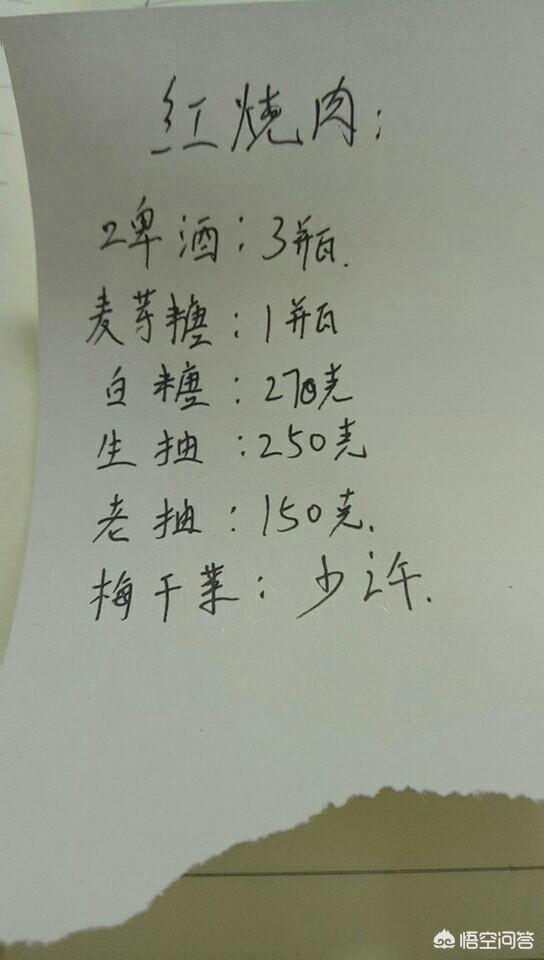 红烧肉:
啤酒:3瓶.
麦芽糖:1瓶
白糖:270克
生抽:250克
老抽:150克.
梅干菜:少许.
悟空问答